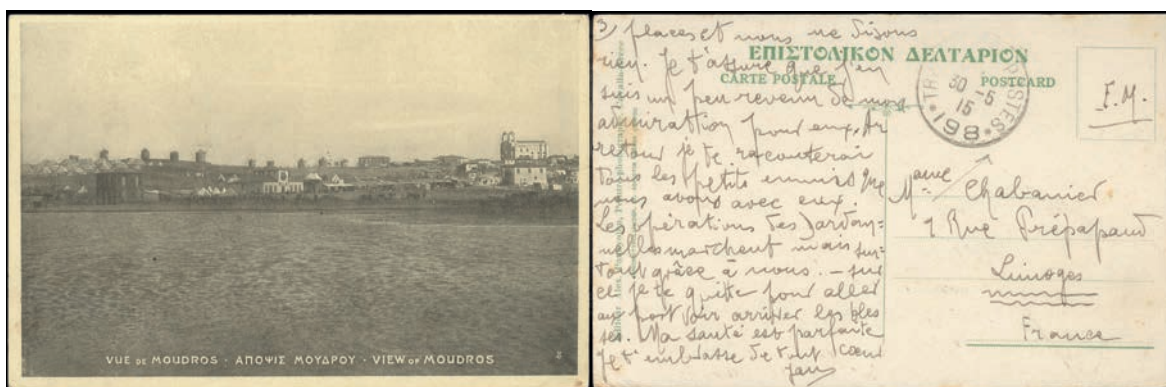 VUE DE MOUDROS - ΑΠΟΨΙΣ ΜΟΥΔΡΟΥ - VIEW OF MOUDROS
3) places et nous ne disons
rien. Je t'assure que j'en
suis un peu revenu de mon
admiration pour eux. Au
retour je te raconterai
tous les petits ennuis que
nous avons avec eux.
Les opérations des Dardan=
nelles marchent mais sur=
tout grâce à nous. — Sur
ce je te quitte pour aller
au port voir arriver les bles
sés. Ma santé est parfaite
Je t'embrasse de tout cœur
ΕΠΙΣΤΟΛΙΚΟΝ ΔΕΛΤΑΡΙΟΝ
CARTE POSTALE
POSTCARD
POSTES
30 -5
15
*198*
F.M.
Madame Chabanier
7 Rue
Limoges
France